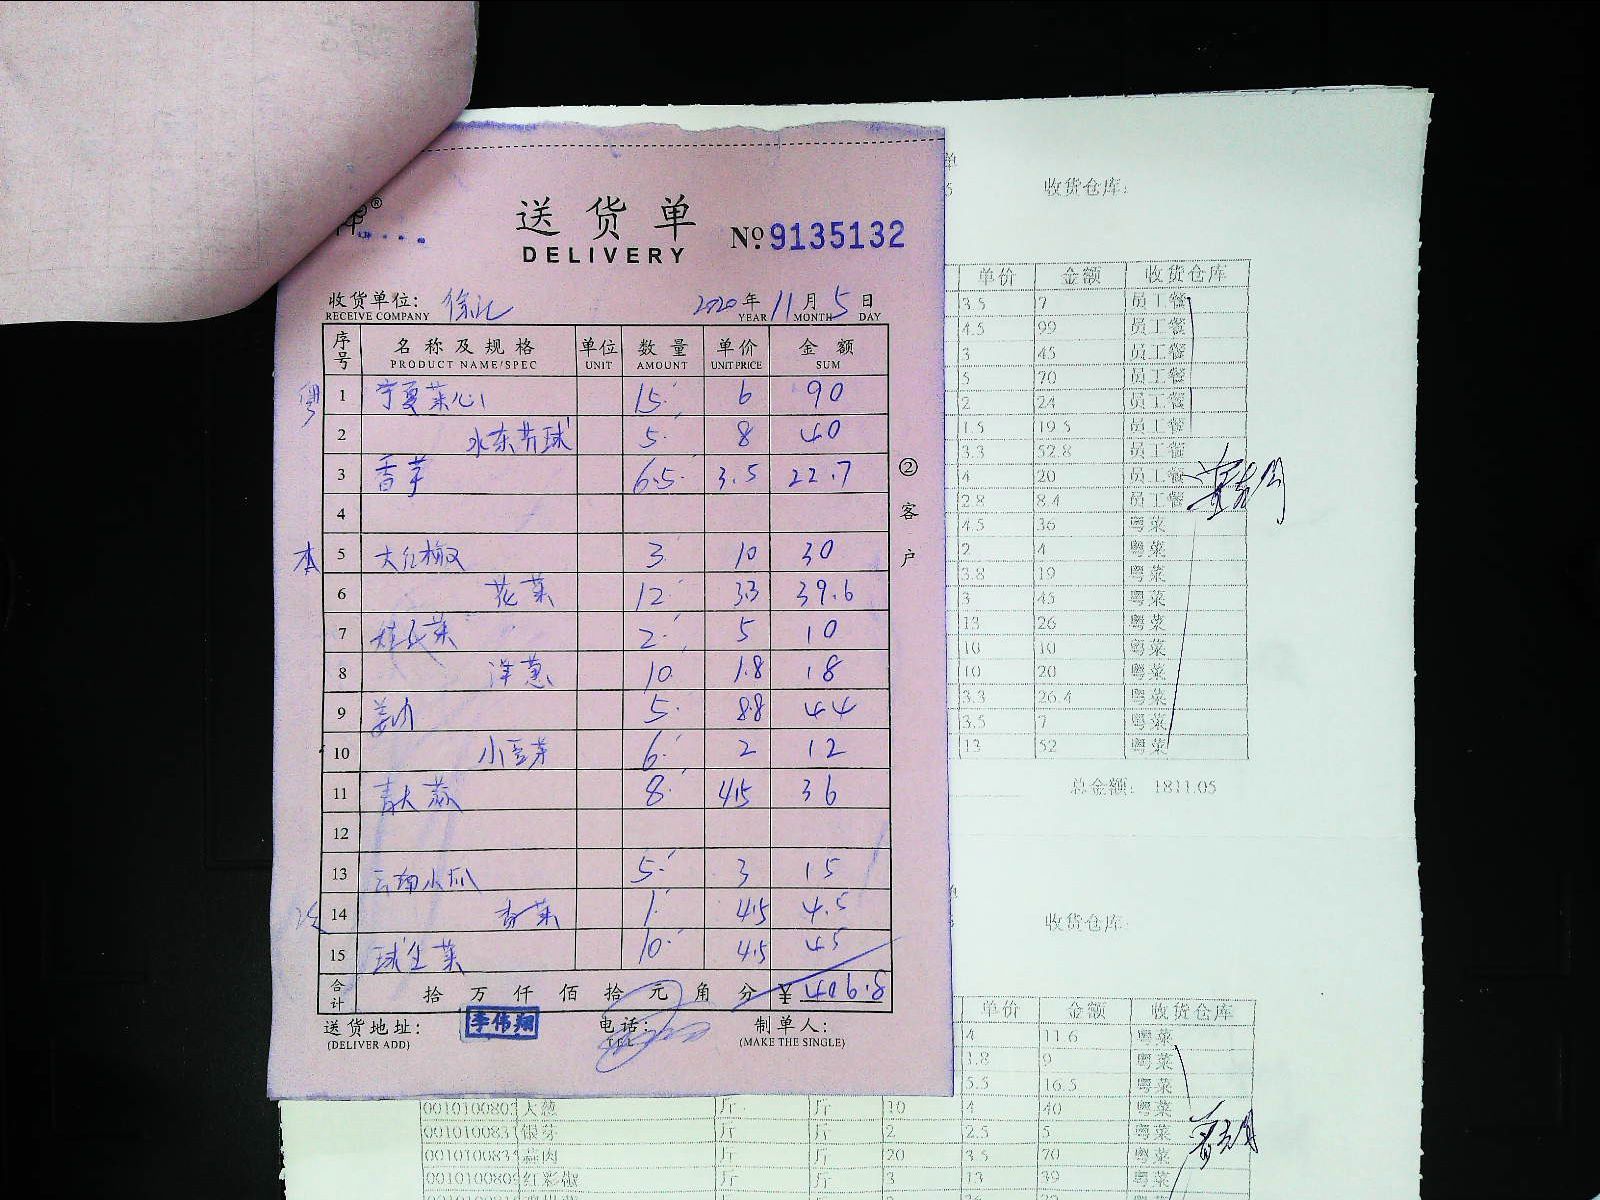 送货单
DELIVERY
№ 9135132
收货单位: 徐记 2020年11月5日
RECEIVE COMPANY YEAR MONTH DAY
序号 名称及规格 单位 数量 单价 金额
PRODUCT NAME/SPEC UNIT AMOUNT UNIT PRICE SUM
粤 1 宁夏菜心 15 6 90
2 水东芥球 5 8 40
3 香芋 6.5 3.5 22.7
4
本 5 大红椒 3 10 30
6 花菜 12 3.3 39.6
7 娃娃菜 2 5 10
8 洋葱 10 1.8 18
9 姜肉 5 8.8 44
10 小豆芽 6 2 12
11 青大蒜 8 4.5 36
12
13 云南小瓜 5 3 15
14 香菜 1 4.5 4.5
15 球生菜 10 4.5 45
合计 拾 万 仟 佰 拾 元 角 分 ¥ 406.8
送货地址: 李伟翔 电话: 制单人:
(DELIVER ADD) TEL (MAKE THE SINGLE)
② 客户
单
收货仓库:
单价 金额 收货仓库
3.5 7 员工餐
4.5 99 员工餐
3 45 员工餐
5 70 员工餐
2 24 员工餐
1.5 19.5 员工餐
3.3 52.8 员工餐
4 20 员工餐
2.8 8.4 员工餐
4.5 36 粤菜
2 4 粤菜
3.8 19 粤菜
3 45 粤菜
13 26 粤菜
10 10 粤菜
10 20 粤菜
3.3 26.4 粤菜
3.5 7 粤菜
13 52 粤菜
总金额: 1811.05
收货仓库:
单价 金额 收货仓库
4 11.6 粤菜
1.8 9 粤菜
5.5 16.5 粤菜
大葱 斤 斤 10 4 40 粤菜
银芽 斤 斤 2 2.5 5 粤菜
蒜肉 斤 斤 20 3.5 70 粤菜
红彩椒 斤 斤 3 13 39 粤菜